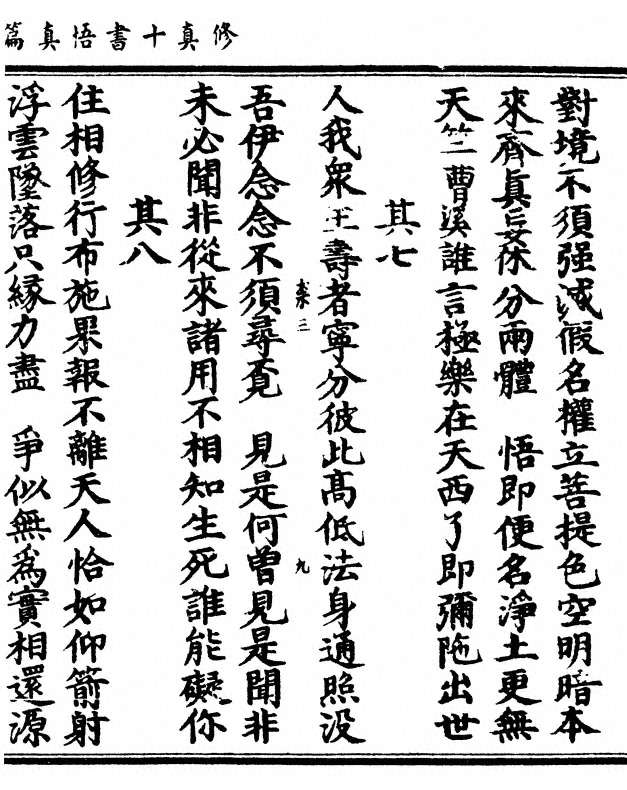 修真十書悟真篇
對境不須强滅假名權立菩提色空明暗本
來齊眞妄休分兩體　悟即便名淨土更無
天竺曹溪誰言極樂在天西了即彌陁出世
其七
人我衆生壽者寧分彼此高低法身通照没
柰三　九
吾伊念念不須尋覔　見是何曾見是聞非
未必聞非從來諸用不相知生死誰能礙你
其八
住相修行布施果報不離天人恰如仰箭射
浮雲墜落只緣力盡　爭似無爲實相還源